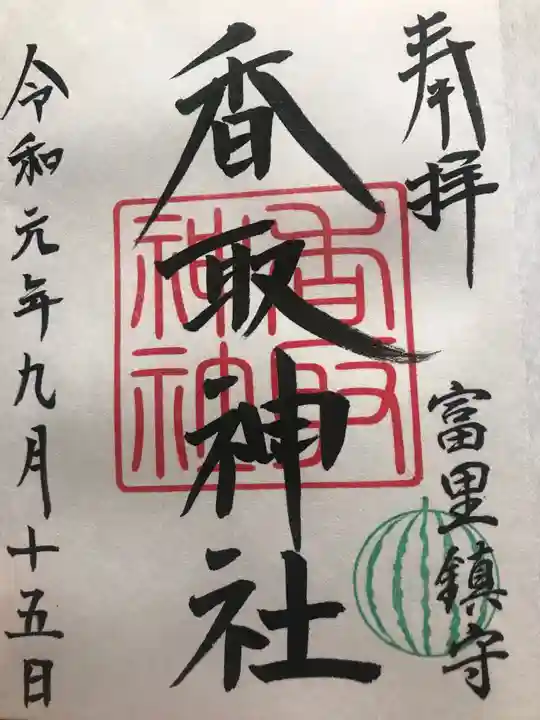 奉拝
富里鎮守
香取神社
香取
神社
令和元年九月十五日